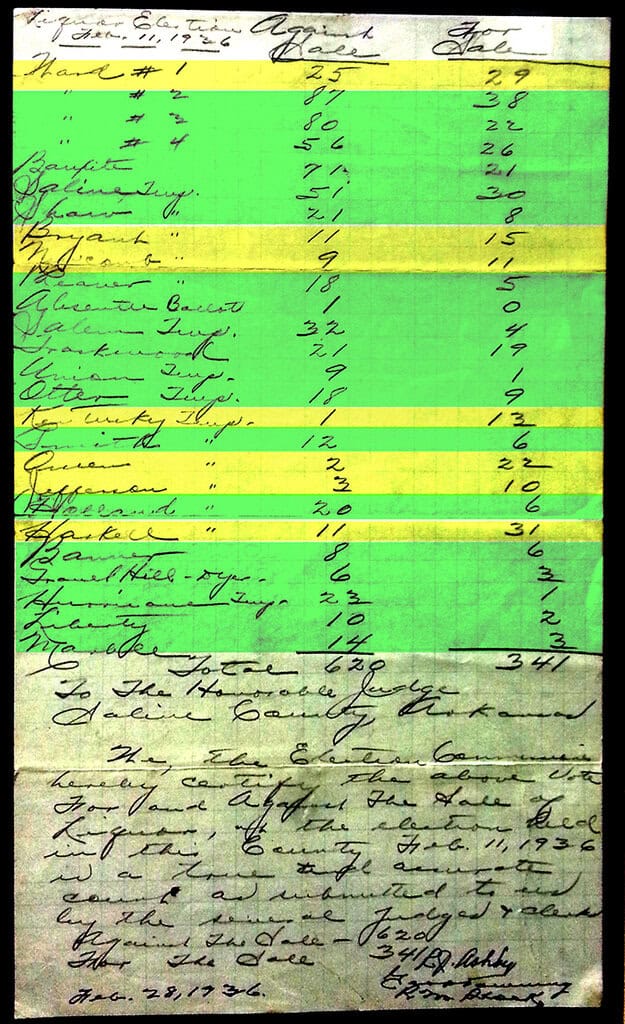 Liquor Election Against For
Feb. 11, 1936 Sale Sale
Ward # 1 25 29
" # 2 87 38
" # 3 80 22
" # 4 56 26
Bauxite 71 21
Saline Twp. 51 30
Shaw " 21 8
Bryant " 11 15
" 9 11
Beaver " 18 5
Absentee Ballott 1 0
Salem Twp. 32 4
Traskwood 21 19
Union Twp. 9 1
Otter Twp. 18 9
Kentucky Twp. 1 13
Smith " 12 6
Owen " 2 22
Jefferson " 3 10
Holland " 20 6
Haskell " 11 31
Banner 8 6
Gravel Hill - Dyer. 6 3
Hurricane Twp. 23 1
Liberty 10 2
Marble 14 3
Total 620 341
To The Honorable Judge
Saline County, Arkansas
We, the Election Commission
hereby certify the above Vote
For and Against The Sale of
Liquor, at the election held
in this County Feb. 11, 1936
is a true and accurate
count as submitted to us
by the several judges & clerks
Against The Sale - 620
For The Sale 341 Ashby
Feb. 28, 1936.